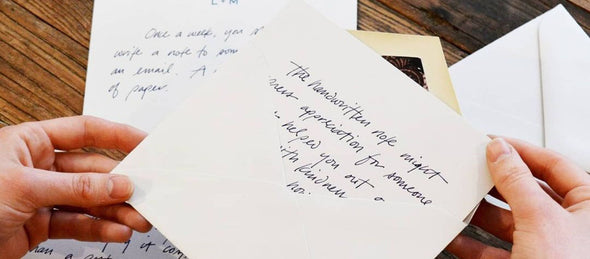 LVM
Once a week, you
write a note to
an email. A
of paper
The handwritten note might
appreciation for someone
helped you out a
kindness
than a